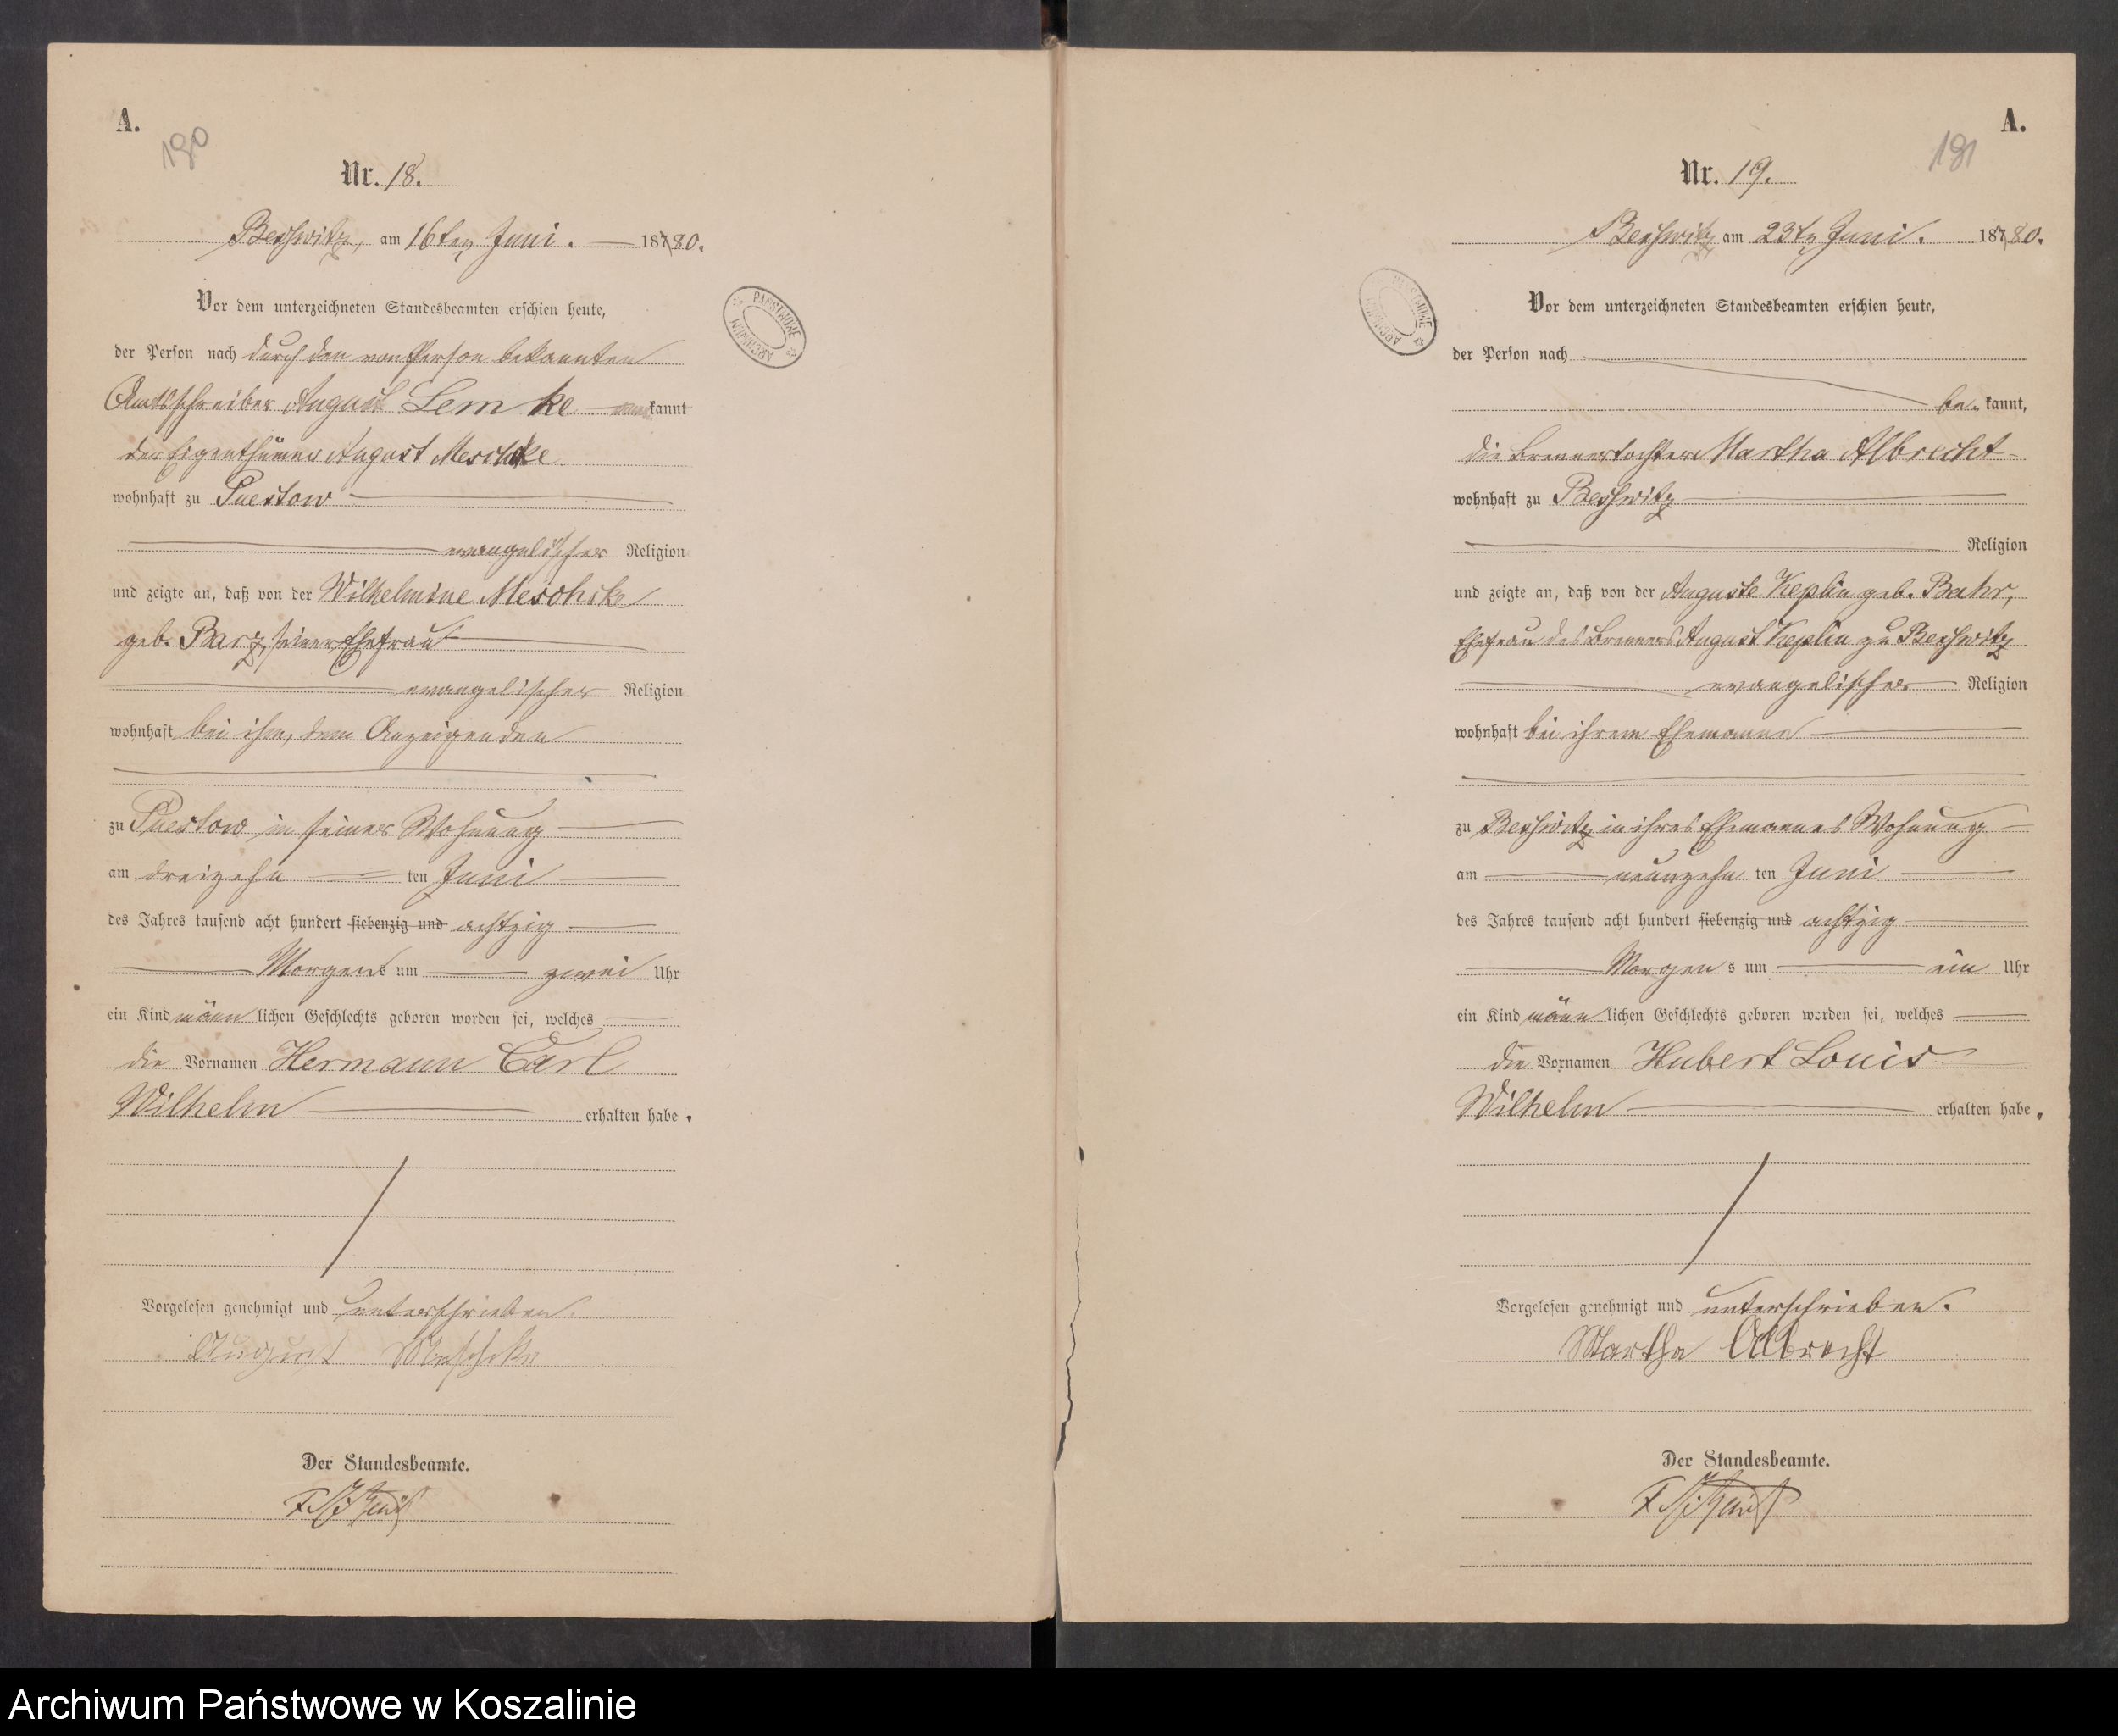 A.
190
Nr. 18.
Besswitz, am 16ten Juni. 18780.
Vor dem unterzeichneten Standesbeamten erschien heute,
der Person nach durch den von Person bekannten
Amtsschreiber August Lemke kannt
der Eigenthümer August Meschke
wohnhaft zu Puestow
evangelischer Religion
und zeigte an, daß von der Wilhelmine Meschke
geb. Barz, seiner Ehefrau
evangelischer Religion
wohnhaft bei ihm, dem Anzeigenden
zu Puestow in seiner Wohnung
am dreizehn ten Juni
des Jahres tausend acht hundert siebenzig und achtzig
Morgens um zwei Uhr
ein Kind männlichen Geschlechts geboren worden sei, welches
die Vornamen Hermann Carl
Wilhelm erhalten habe.
Vorgelesen genehmigt und unterschrieben.
August Meschke
Der Standesbeamte.
ARCHIWUM PAŃSTWOWE
A.
191
Nr. 19.
Besswitz am 23ten Juni. 18780.
Vor dem unterzeichneten Standesbeamten erschien heute,
der Person nach
be-kannt,
die Brennertochter Martha Albrecht
wohnhaft zu Besswitz
Religion
und zeigte an, daß von der Auguste Keplin geb. Bahr,
Ehefrau des Brenners August Keplin zu Besswitz
evangelischer Religion
wohnhaft bei ihrem Ehemanne
zu Besswitz in ihres Ehemannes Wohnung
am neunzehn ten Juni
des Jahres tausend acht hundert siebenzig und achtzig
Morgens um ein Uhr
ein Kind männlichen Geschlechts geboren worden sei, welches
die Vornamen Hubert Louis
Wilhelm erhalten habe.
Vorgelesen genehmigt und unterschrieben.
Martha Albrecht
Der Standesbeamte.
ARCHIWUM PAŃSTWOWE
Archiwum Państwowe w Koszalinie